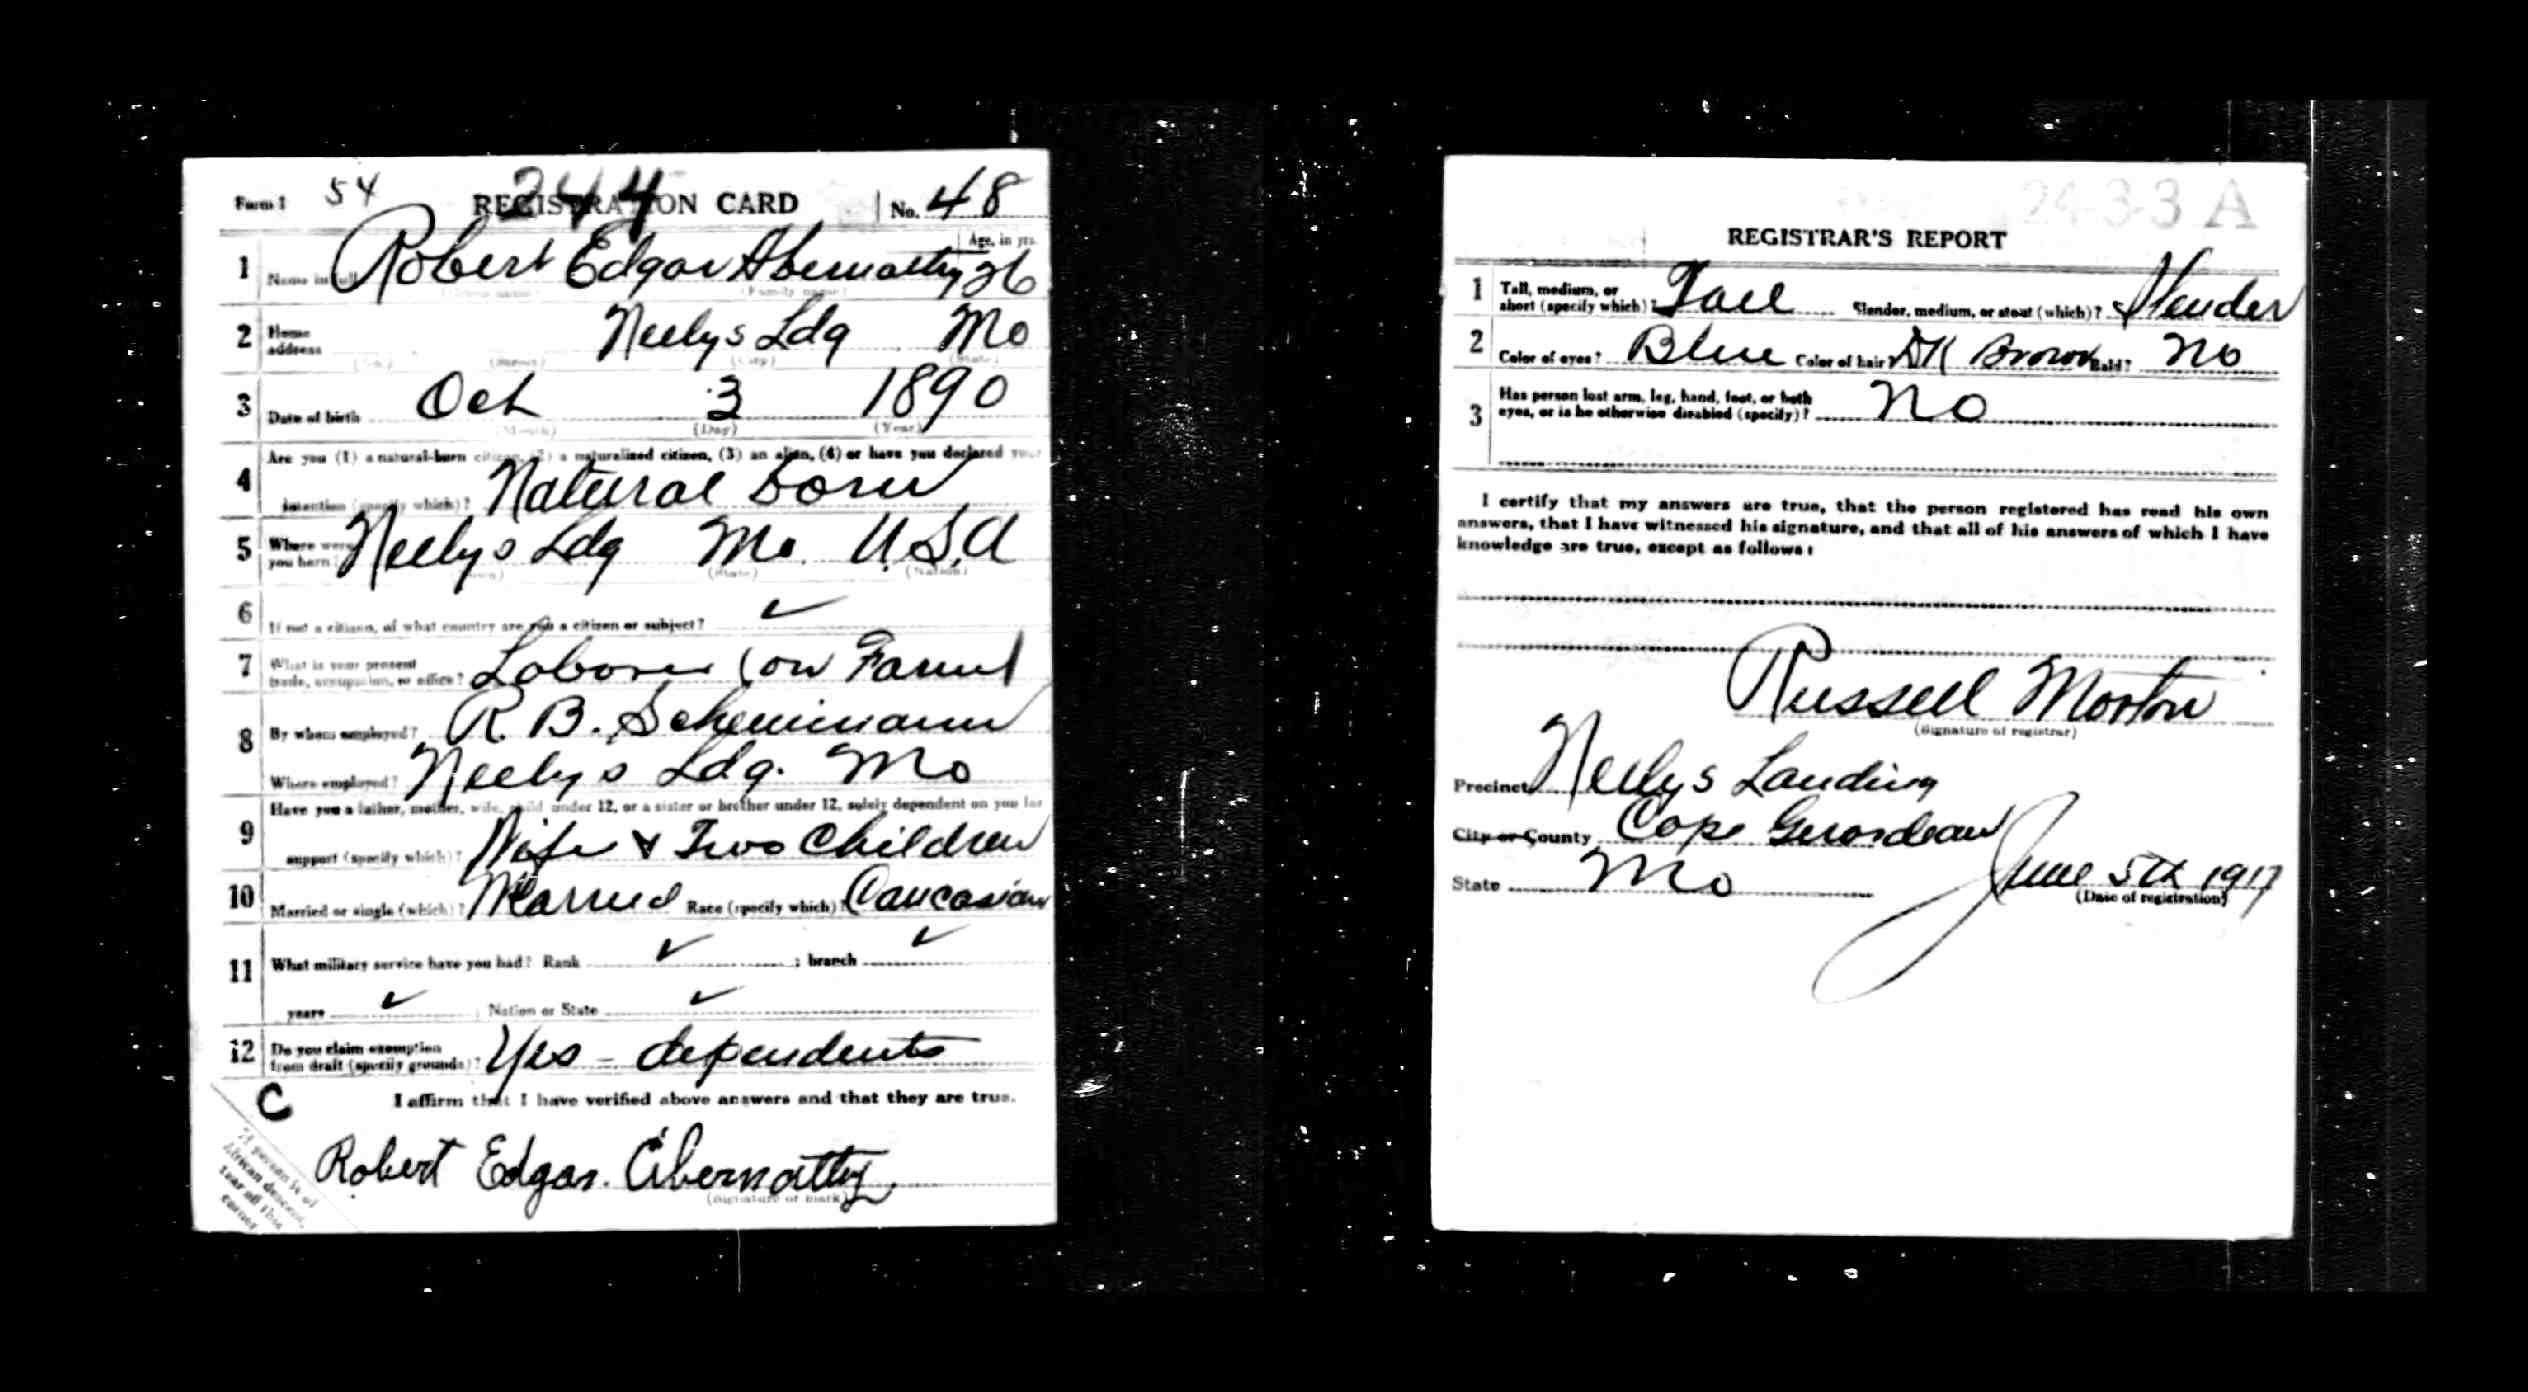 Form 1 54 REGISTRATION CARD No. 48
244
Age, in yrs.
1 Name in full Robert Edgar Abernathy 26
(Family name)
2 Home address Neelys Ldg Mo
(City) (State)
3 Date of birth Oct 3 1890
(Month) (Day) (Year)
4 Are you (1) a natural-born citizen, (2) a naturalized citizen, (3) an alien, (4) or have you declared your
intention (specify which)? Natural born
5 Where were you born? Neelys Ldg Mo. U.S.A
(Town) (State) (Nation)
6 If not a citizen, of what country are you a citizen or subject? ✓
7 What is your present trade, occupation, or office? Laborer (on Farm)
8 By whom employed? R. B. Scheuimann
Where employed? Neelys Ldg. Mo
9 Have you a father, mother, wife, child under 12, or a sister or brother under 12, solely dependent on you for
support (specify which)? Wife & Two Children
10 Married or single (which)? Married Race (specify which)? Caucasian
11 What military service have you had? Rank ✓ ; branch ✓
years ✓ Nation or State ✓
12 Do you claim exemption from draft (specify grounds)? Yes - dependents
C
I affirm that I have verified above answers and that they are true.
Robert Edgar. Abernathy
(Signature or mark)
If person is of
African descent,
tear off this
corner
24-3-3 A
REGISTRAR'S REPORT
1 Tall, medium, or short (specify which)? Tall Slender, medium, or stout (which)? Slender
2 Color of eyes? Blue Color of hair? DK Brown Bald? No
3 Has person lost arm, leg, hand, foot, or both
eyes, or is he otherwise disabled (specify)? No
I certify that my answers are true, that the person registered has read his own
answers, that I have witnessed his signature, and that all of his answers of which I have
knowledge are true, except as follows:
Russell Morton
(Signature of registrar)
Precinct Neelys Landing
City or County Cape Girardeau
State Mo June 5th 1917
(Date of registration)